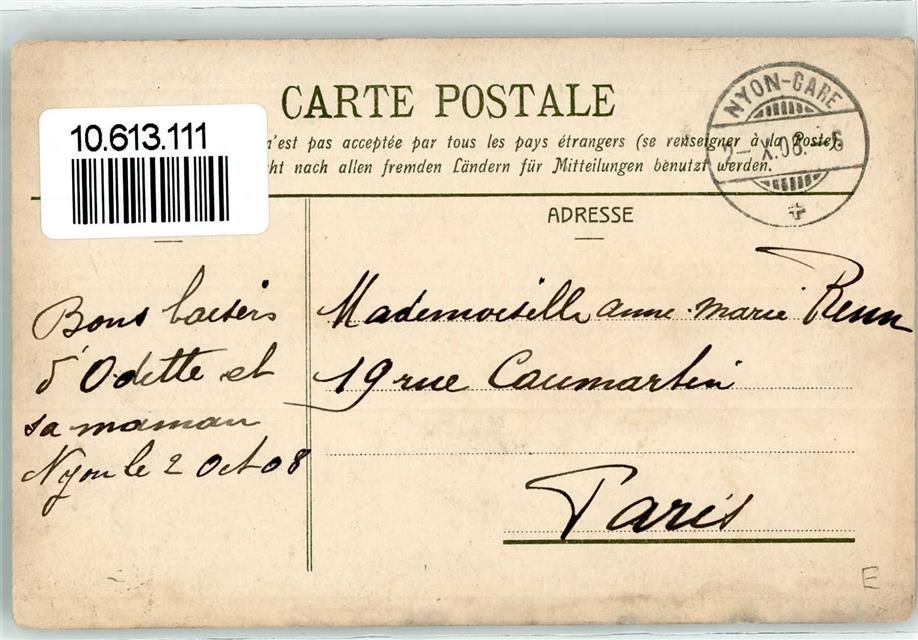 10.613.111
CARTE POSTALE
n'est pas acceptée par tous les pays étrangers (se renseigner à la Poste).
nach allen fremden Ländern für Mitteilungen benutzt werden.
NYON-GARE
2– X.08.–6
ADRESSE
Bons baisers
d'Odette et
sa maman
Nyon le 2 Oct 08
Mademoiselle anne-marie
19 rue Caumartin
Paris
E